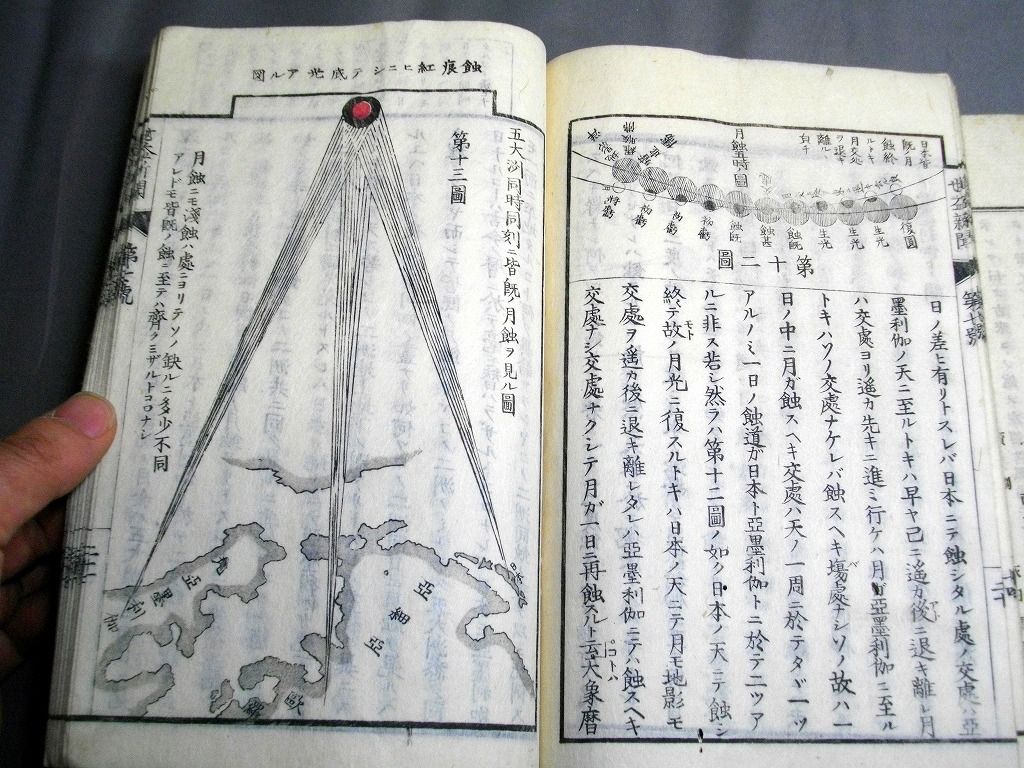 月蝕五時ノ圖
日本昏
既ノ月
蝕終
ルトキ
月交処
ヲ退キ
離ル
復圓
生光
生光
生光
蝕既
蝕甚
蝕既
初虧
初虧
初虧
第十二圖
日ノ差ヒ有リトスレバ日本ニテ蝕シタル處ノ交處ハ亞
墨利伽ノ天ニ至ルトキハ早ヤ已ニ遥カ後ニ退キ離レ月
ハ交處ヨリ遥カ先キニ進ミ行ケハ月ガ亞墨利伽ニ至ル
トキハソノ交處ナケレバ蝕スヘキ塲處ナシソノ故ハ一
日ノ中ニ月ガ蝕スヘキ交處ハ天ノ一周ニ於テタダ一ツ
アルノミ一日ノ蝕道ガ日本ト亞墨利伽トニ於テ二ツア
ルニ非ス若シ然ラハ第十二圖ノ如ク日本ノ天ニテ蝕シ
終テ故ノ月光ニ復スルトキハ日本ノ天ニテ月モ地影モ
交處ヲ遥カ後ニ退キ離レタレハ亞墨利伽ニテハ蝕スヘキ
交處ナシ交處ナクシテ月ガ一日ニ再蝕スルト云大象暦
蝕痕紅ヒニシテ底光アル図
五大洲同時同刻ニ皆既ノ月蝕ヲ見ル圖
第十三圖
月蝕ニモ淺蝕ハ處ニヨリテソノ缺ルニ多少不同
アレドモ皆既ノ蝕ニ至テハ齊ク三ザルトコロナシ
日本
亞細亞
歐羅
亞墨利